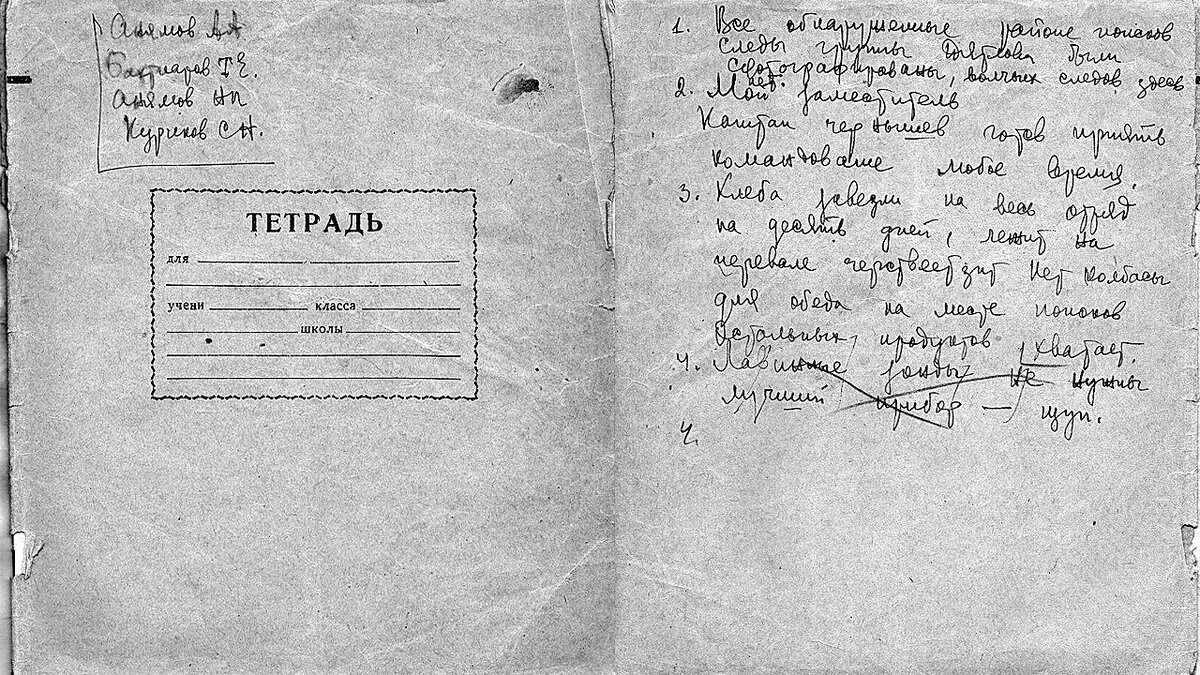 Анямов АА
Бахтиаров Т.Е.
Анямов НП
Куриков С Н.
ТЕТРАДЬ
для
учени класса
школы
1. Все обнаруженные районе поисков
следы группы Дятлова были
сфотографированы, волчьих следов здесь
нет.
2. Мой заместитель
Капитан Чернышев готов принять
командование любое время.
3. Хлеба завезли на весь отряд
на десять дней, лежит на
перевале черствеет тчк Нет колбасы
для обеда на месте поисков
Остальных продуктов хватает.
4. Лавинные зонды не нужны
лучший прибор — щуп.
4.